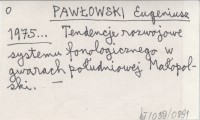 O
PAWŁOWSKI Eugeniusz
1975... Tendencje rozwojowe
systemu fonologicznego w
gwarach południowej Małopol-
ski.